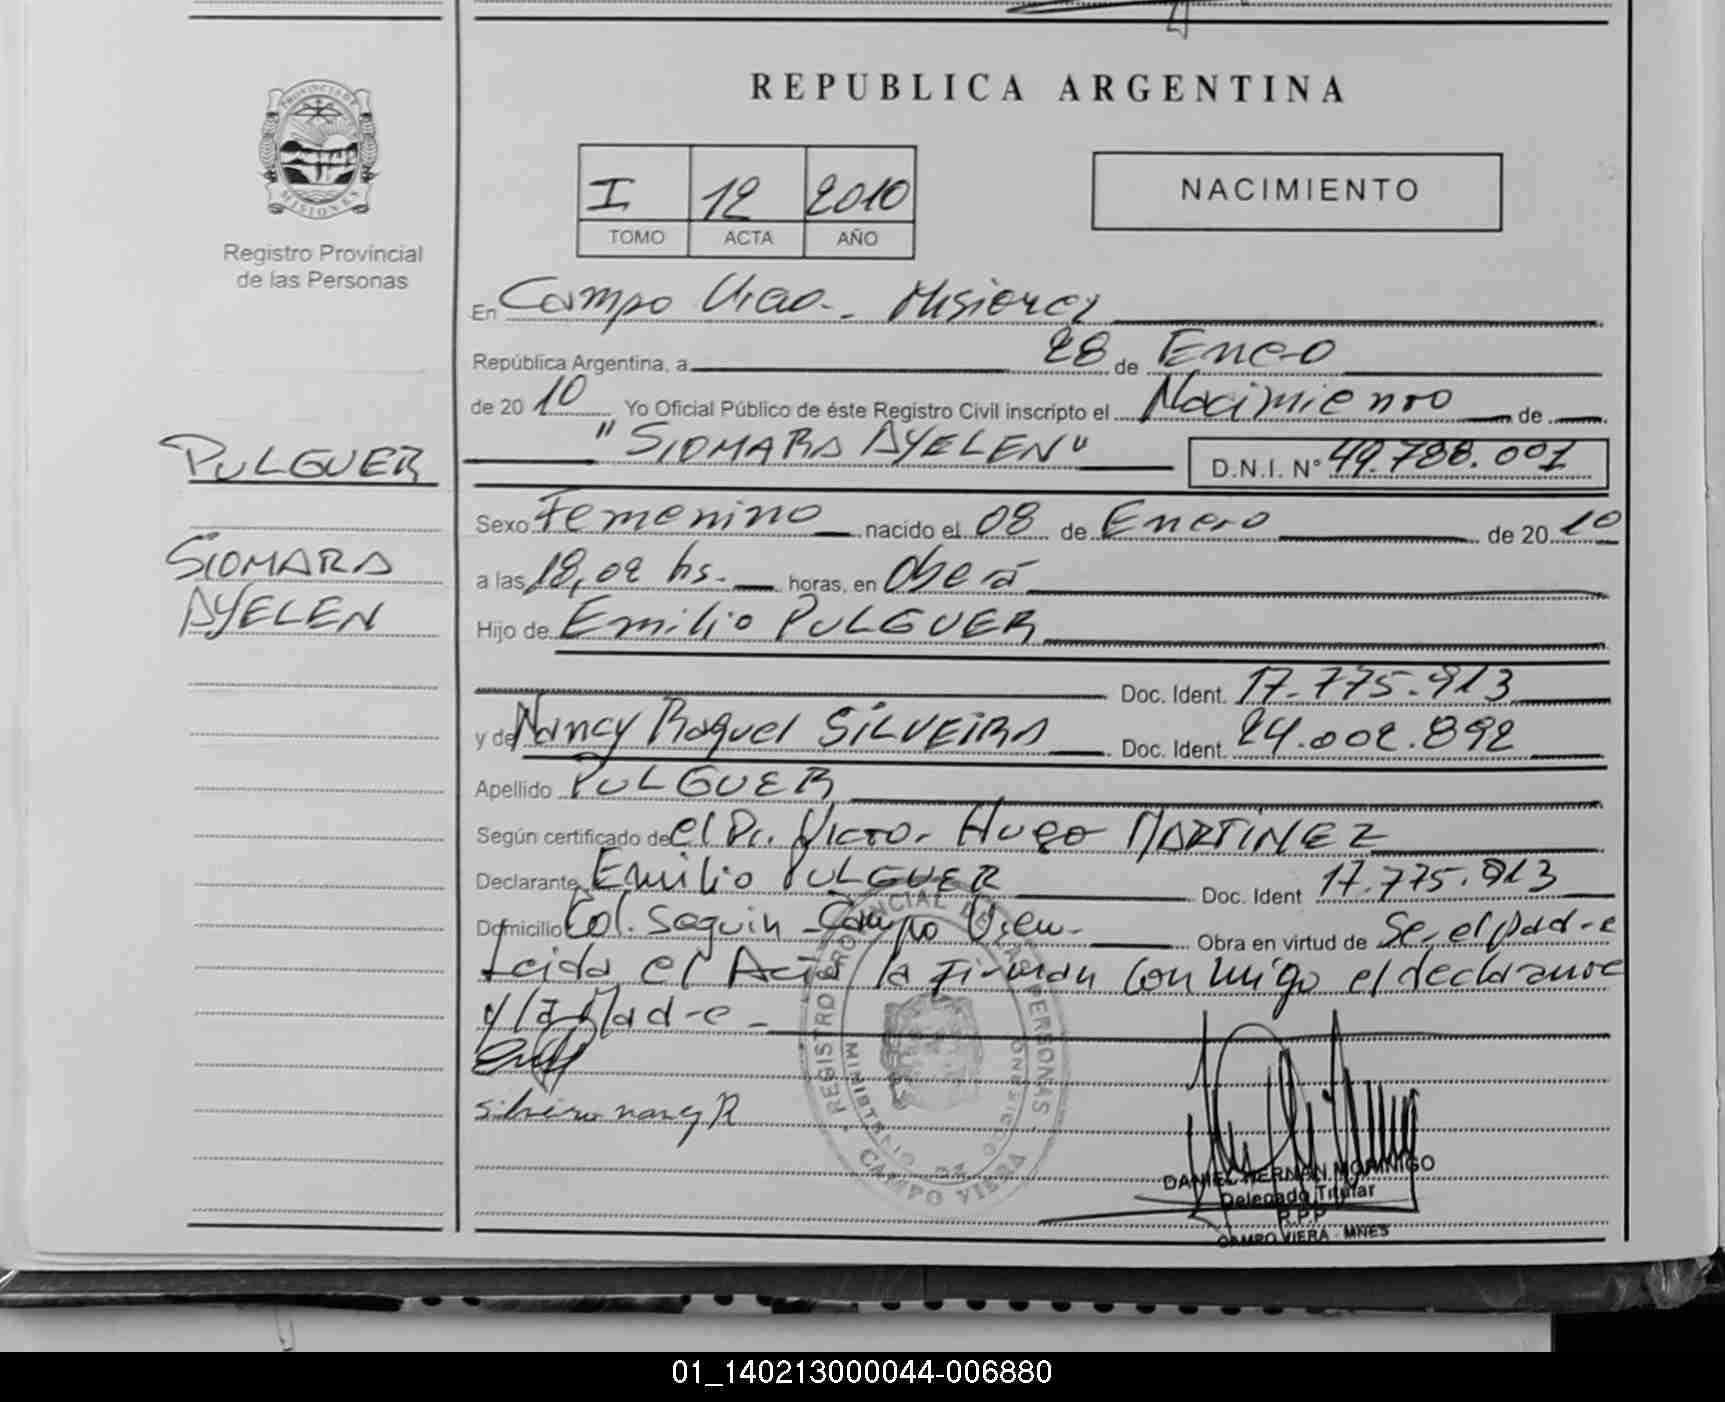 REPUBLICA ARGENTINA
PROVINCIA DE
MISIONES
Registro Provincial
de las Personas
I 12 2010
TOMO ACTA AÑO
NACIMIENTO
En Campo Viera - Misiones
República Argentina, a 28 de Enero
de 20 10 Yo Oficial Público de éste Registro Civil inscripto el Nacimiento de
"SIOMARA AYELEN"
D.N.I. N° 49.788.001
PULGUER
SIOMARA
AYELEN
Sexo Femenino nacido el 08 de Enero de 20 10
a las 18,02 hs. horas, en Oberá
Hijo de Emilio PULGUER
Doc. Ident. 17.775.913
y de Nancy Raquel SILVEIRA Doc. Ident. 24.002.892
Apellido PULGUER
Según certificado de el Dr. Victor Hugo MARTINEZ
Declarante Emilio PULGUER Doc. Ident 17.775.913
Domicilio Col. Seguin - Campo Viera - Obra en virtud de Ser el padre
Leida el Acta la Firman conmigo el declarante
y la Madre -
Silveira nancy R
REGISTRO PROVINCIAL DE LAS PERSONAS
MINISTERIO DE GOBIERNO
CAMPO VIERA
DANIEL HERNAN MORINIGO
Delegado Titular
R.P.P
CAMPO VIERA - MNES
01_140213000044-006880